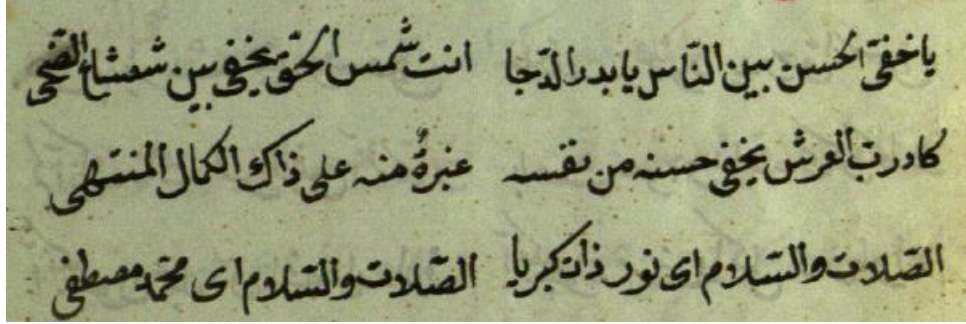 يا خفيّ الحسن بين النّاس يا بدر الدّجا انت شمس الحقّ يخفى بين شعشاع الضّحى
كاد ربّ العرش يخفى حسنه من نفسه غيرةً منه على ذاك الكمال المنتهى
الصّلات والسّلام اى نور ذات كبريا الصّلات والسّلام اى محمّد مصطفى